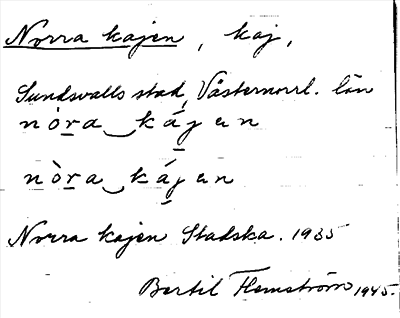 Norra kajen, kaj,
Sundsvalls stad, Västernorrl. län
nòr̲a‿kájen
nòr̲a‿kájen
Norra kajen Stadska. 1935
Bertil Flemström 1945.